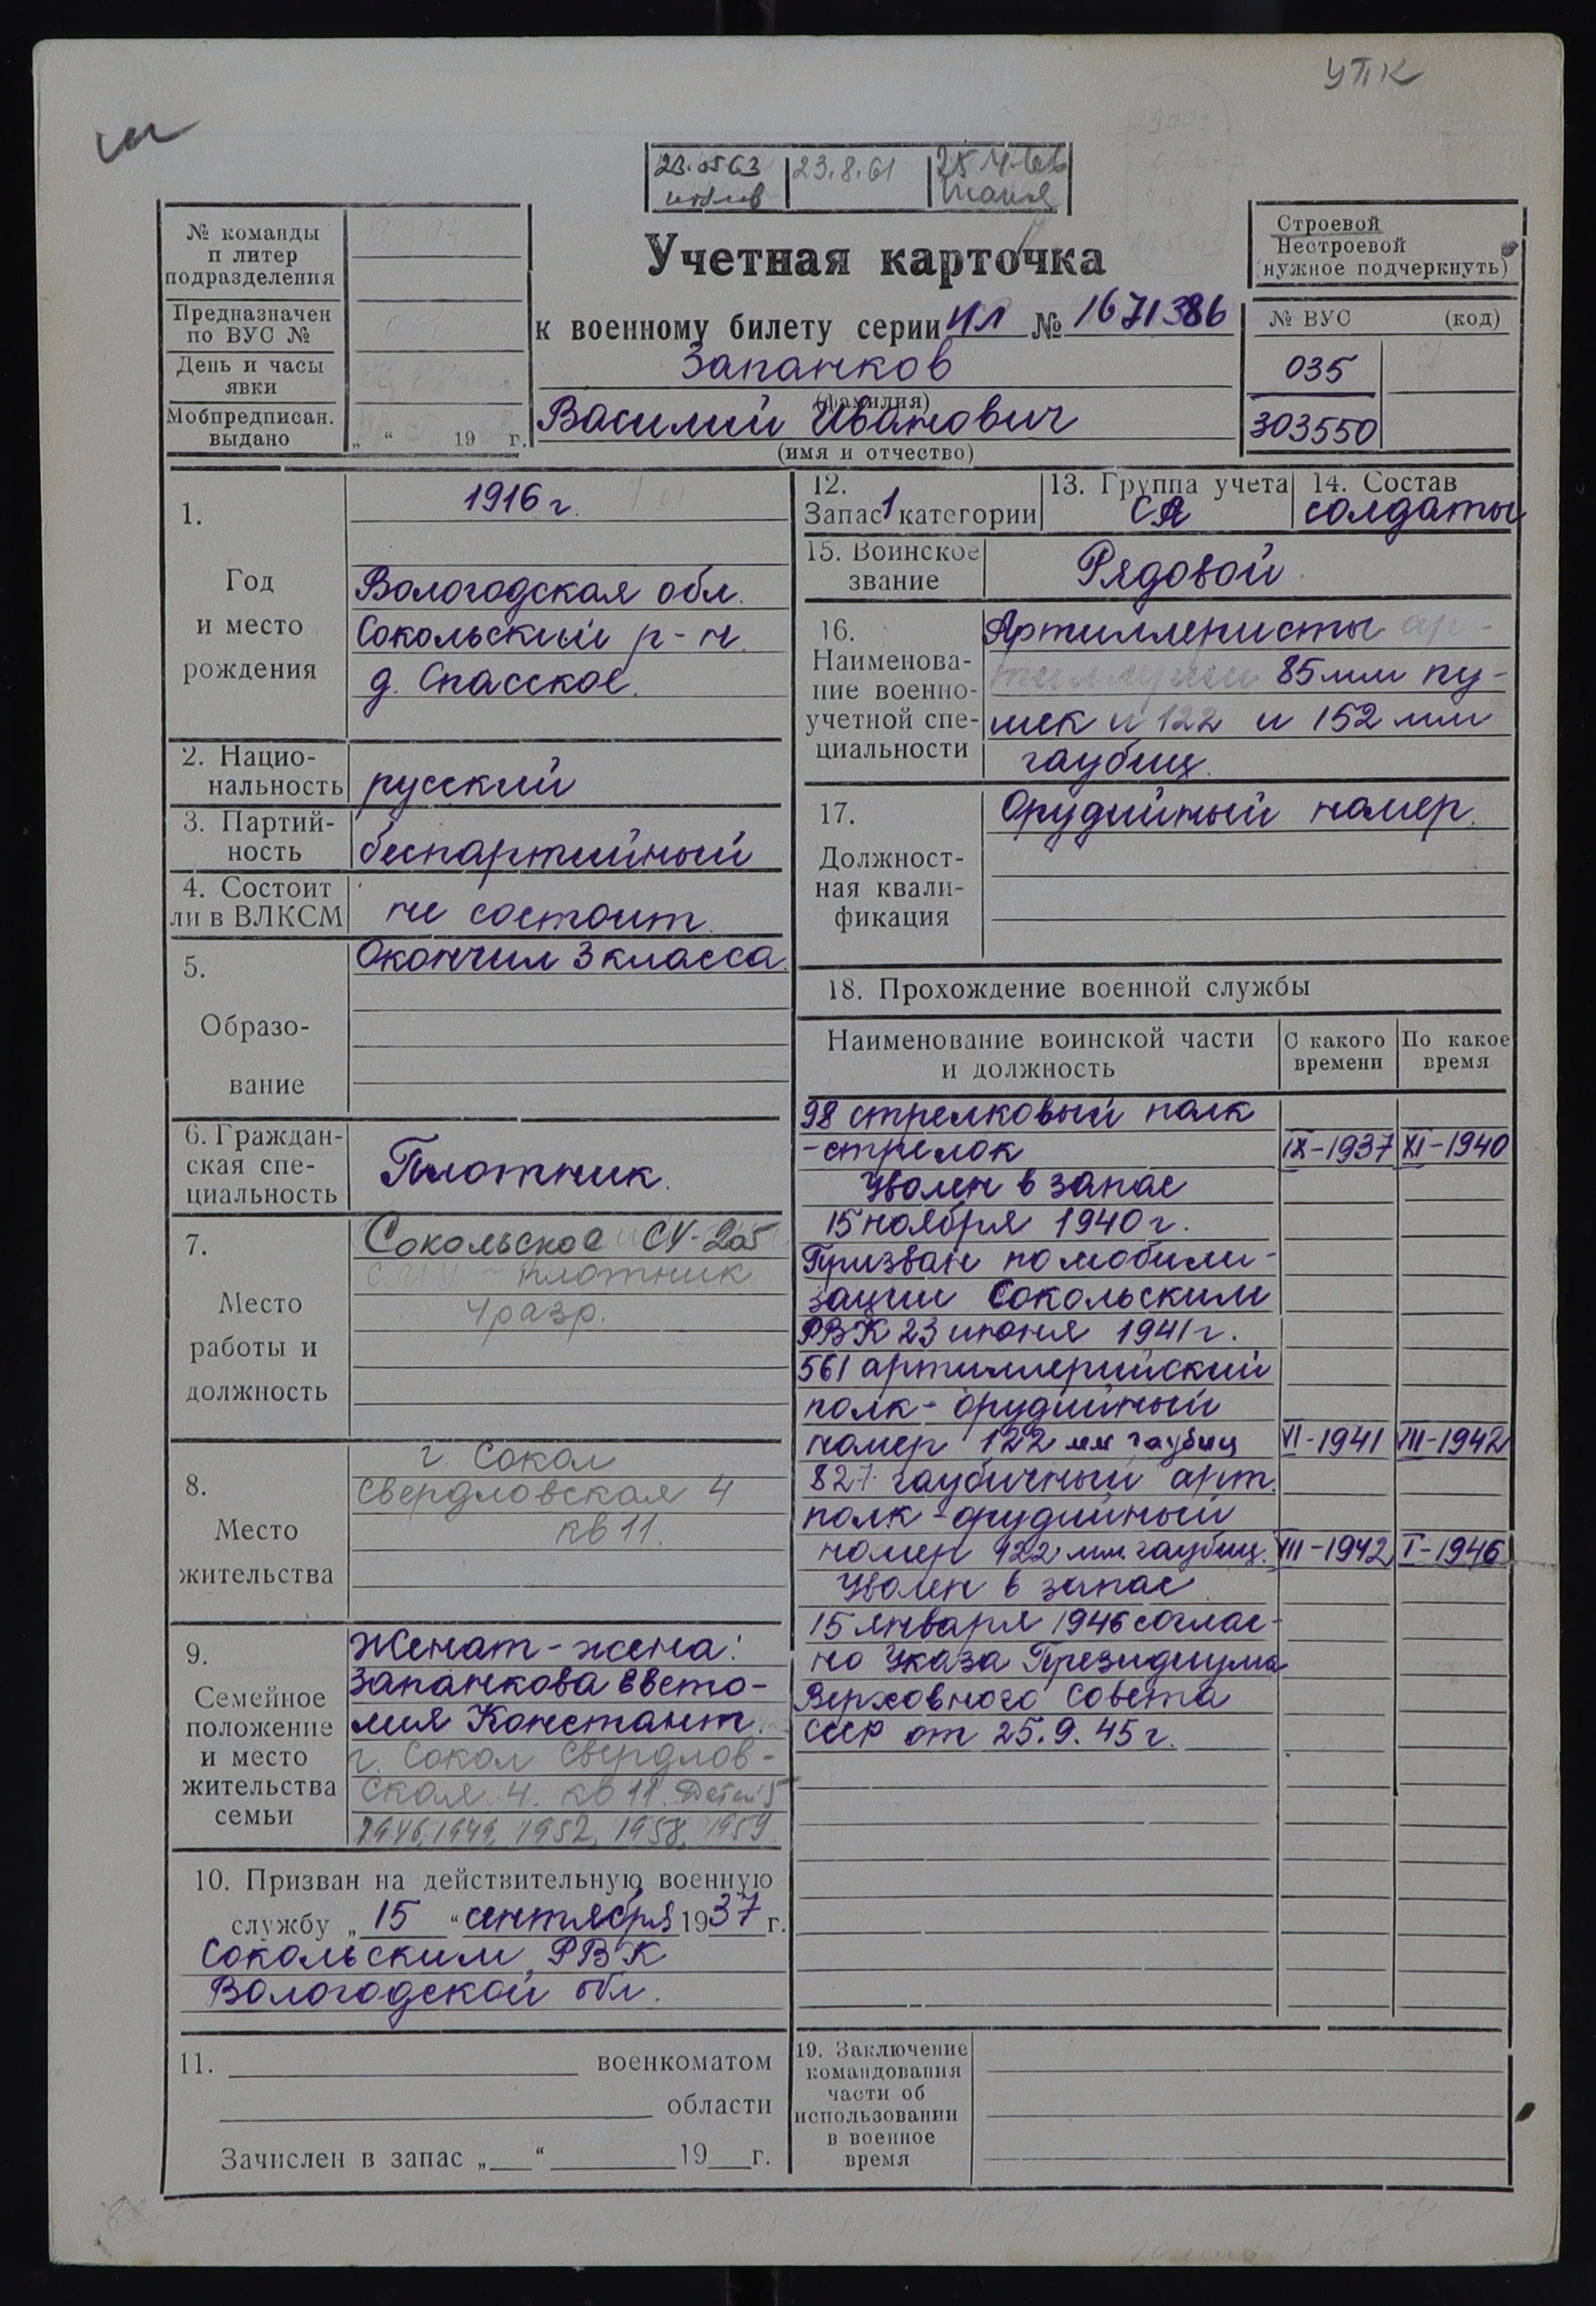 УПК
23.0563 23.8.61
№ команды
п литер
подразделения
Предназначен
по ВУС №
День и часы
явки
Мобпредписан.
выдано
„ “ 19 г.
Учетная карточка
к военному билету серии ИЛ № 1671386
Запанков
(фамилия)
Василий Иванович
(имя и отчество)
Строевой
Нестроевой
(нужное подчеркнуть)
№ ВУС (код)
035
303550
1.
Год
и место
рождения
1916 г.
Вологодская обл.
Сокольский р-н.
д. Спасское.
2. Нацио-
нальность русский
3. Партий-
ность беспартийный
4. Состоит
ли в ВЛКСМ не состоит
5.
Образо-
вание
Окончил 3 класса.
6. Граждан-
ская спе-
циальность
Плотник.
7.
Место
работы и
должность
Сокольское СУ-205
плотник
4 разр.
8.
Место
жительства
г. Сокол
Свердловская 4
кв 11.
9.
Семейное
положение
и место
жительства
семьи
Женат - жена:
Запанкова Евсто-
лия Константин.
г. Сокол Свердлов-
ская 4. кв 11. Детей 5
1946, 1949, 1952, 1958, 1959
10. Призван на действительную военную
службу „ 15 “ сентября 1937 г.
Сокольским РВК
Вологодской обл.
11. военкоматом
области
Зачислен в запас „ “ 19 г.
12.
Запас 1 категории
13. Группа учета
СА
14. Состав
солдаты
15. Воинское
звание
Рядовой
16.
Наименова-
ние военно-
учетной спе-
циальности
Артиллеристы ар-
тиллерии 85 мм пу-
шек и 122 и 152 мм
гаубиц.
17.
Должност-
ная квали-
фикация
Орудийный номер.
18. Прохождение военной службы
Наименование воинской части
и должность
С какого
времени
По какое
время
98 стрелковый полк
- стрелок IX-1937 XI-1940
Уволен в запас
15 ноября 1940 г.
Призван по мобили-
зации Сокольским
РВК 23 июня 1941 г.
561 артиллерийский
полк - орудийный
номер 122 мм гаубиц VI-1941 VIII-1942
827 гаубичный арт.
полк - орудийный
номер 122 мм. гаубиц. VIII-1942 I-1946
Уволен в запас
15 января 1946 соглас-
но Указа Президиума
Верховного Совета
СССР от 25.9.45 г.
19. Заключение
командования
части об
использовании
в военное
время